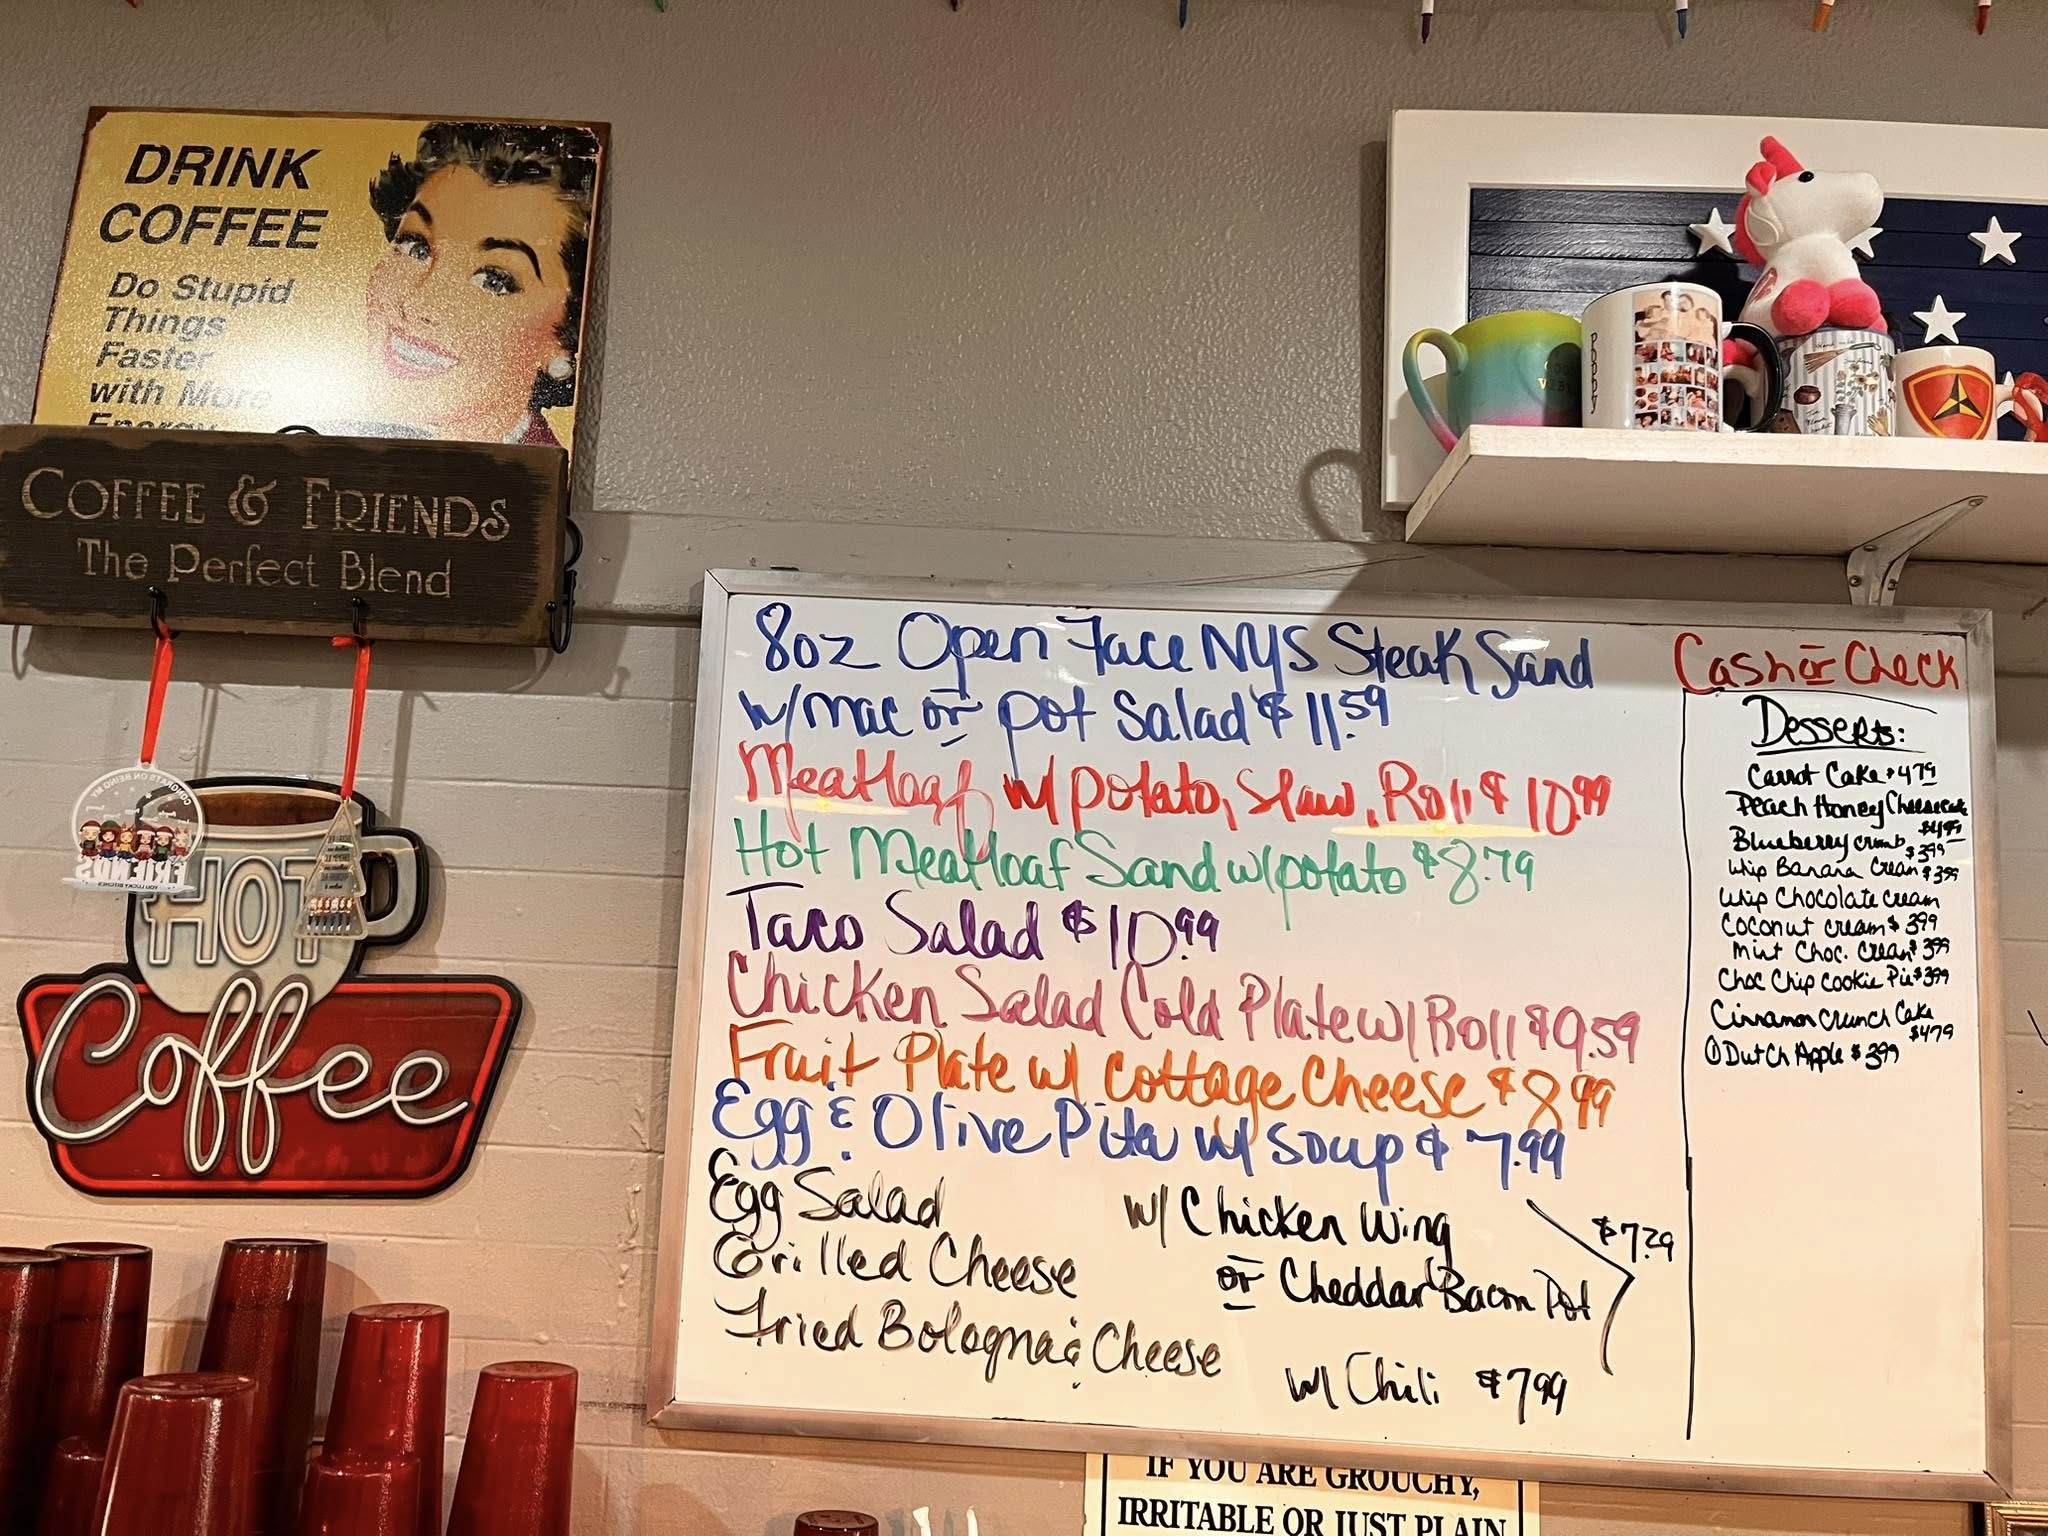 DRINK
COFFEE
Do Stupid
Things
Faster
with More
Energy
COFFEE & FRIENDS
The Perfect Blend
CONGRATS ON BEING MY
FRIENDS
YOU LUCKY BITCHES
HOT
Coffee
POPPY
8oz Open Face NYS Steak Sand
w/mac or pot Salad $11.59
Meatloaf w/potato, Slaw, Roll $10.99
Hot Meatloaf Sand w/potato $8.79
Taco Salad $10.99
Chicken Salad Cold Plate w/Roll $9.59
Fruit Plate w/ Cottage Cheese $8.99
Egg & Olive Pita w/ Soup $7.99
Egg Salad
Grilled Cheese
Fried Bologna & Cheese
w/ Chicken Wing
or Cheddar Bacon Pot
$7.29
w/ Chili $7.99
Cash or Check
Desserts:
Carrot Cake $4.79
Peach Honey Cheesecake
$4.99
Blueberry crumb $3.99
Whip Banana Cream $3.99
Whip Chocolate cream
Coconut cream $3.99
Mint Choc. Cream $3.99
Choc Chip Cookie Pie $3.99
Cinnamon Crunch Cake
$4.79
① Dutch Apple $3.99
IF YOU ARE GROUCHY,
IRRITABLE OR JUST PLAIN